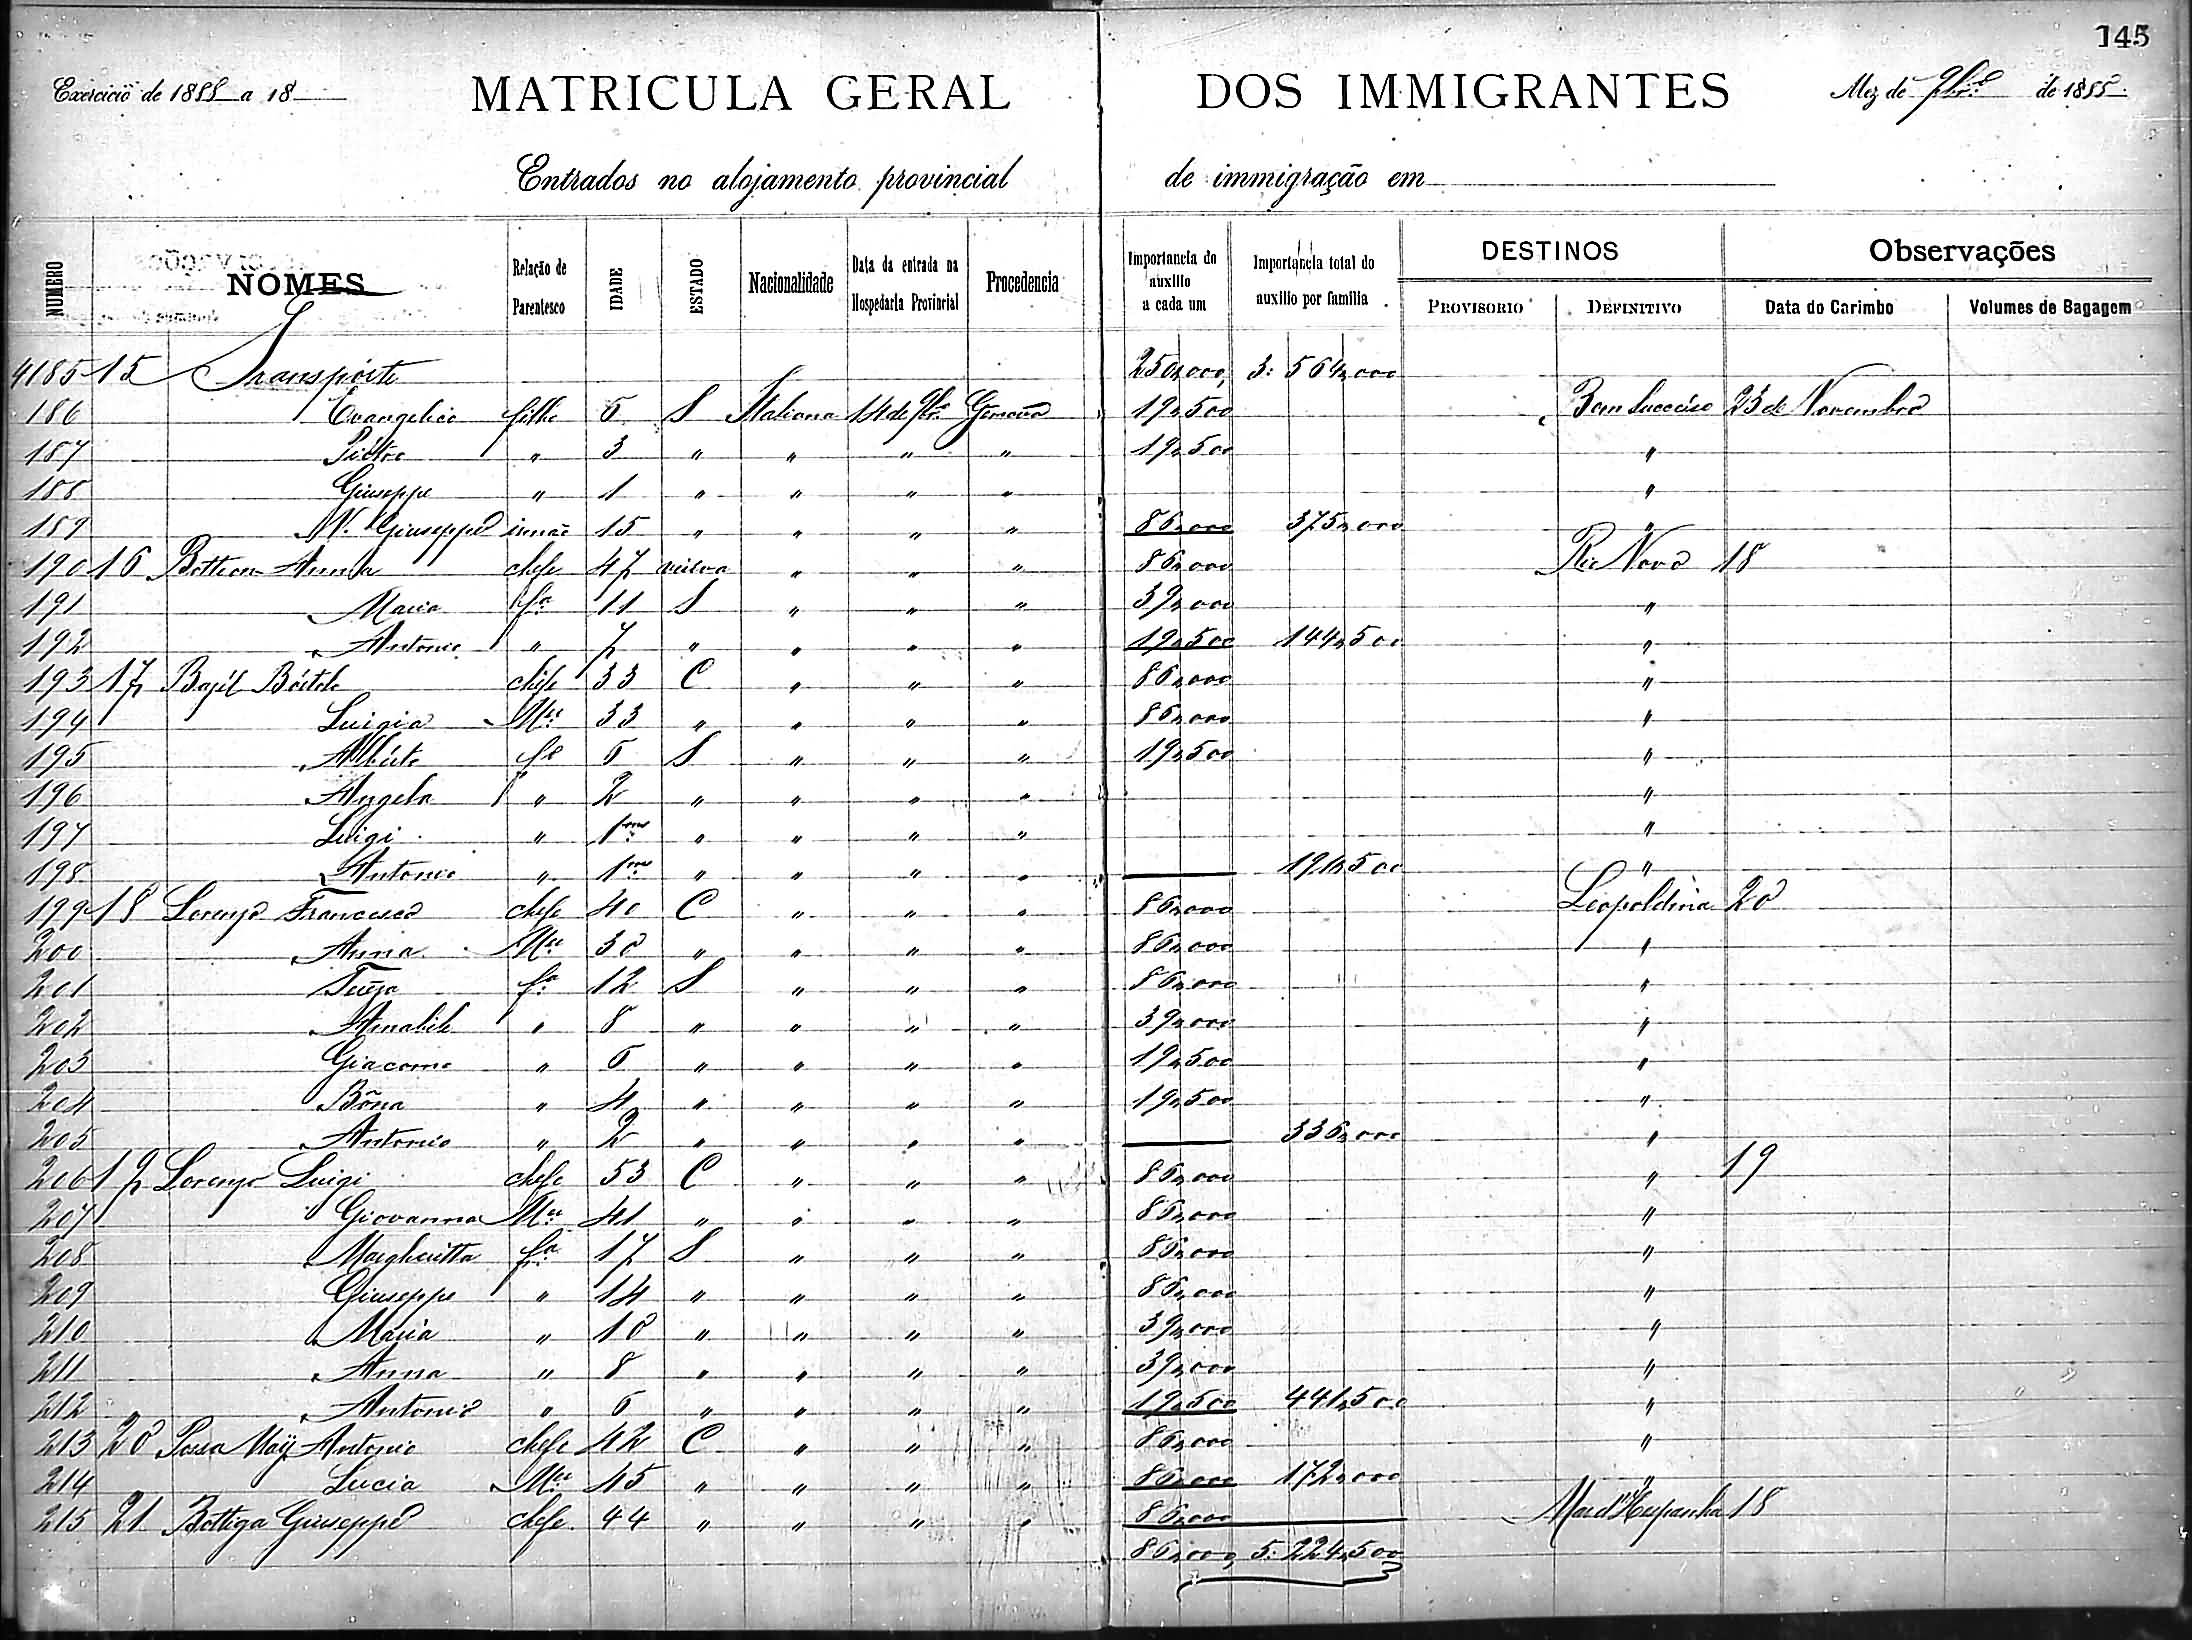 145
Exercicio de 1888 a 18
MATRICULA GERAL DOS IMMIGRANTES
Mez de 9br.º de 1888
Entrados no alojamento provincial de immigração em
NUMERO NOMES Relação de Parentesco IDADE ESTADO Nacionalidade Data da entrada na Hospedaria Provincial Procedencia Importancia do auxilio a cada um Importancia total do auxilio por familia DESTINOS PROVISORIO DEFINITIVO Observações Data do Carimbo Volumes de Bagagem
4185 15 Transporte 250,000, 3: 564,000
186 Evangelico filho 6 S Italiana 14 de 9br.º Genova 19,500 Bom Successo 23 de Novembro
187 Pietro " 3 " " " " 19,500 "
188 Giuseppe " 1 " " " " "
189 N. Giuseppe irmão 15 " " " " 86,000 375,000 "
190 16 Anna chefe 47 viuva " " " 86,000 Rio Novo 18
191 Maria fª 11 S " " " 39,000 "
192 Antonio " 7 " " " " 19,500 144,500 "
193 17 chefe 33 C " " " 86,000 "
194 Luigia Mer 33 " " " " 86,000 "
195 Alberto fº 6 S " " " 19,500 "
196 Angela " 2 " " " " "
197 Luigi " 1m " " " " "
198 Antonio " 1m " " " " 191,500 "
199 18 Lorenzo Francesco chefe 40 C " " " 86,000 Leopoldina 20
200 Anna Mer 30 " " " " 86,000 "
201 Tereza fª 12 S " " " 86,000 "
202 Amabile " 8 " " " " 39,000 "
203 Giacomo " 6 " " " " 19,500 "
204 Bôna " 4 " " " " 19,500 "
205 Antonio " 2 " " " " 336,000 "
206 19 Lorenzo Luigi chefe 53 C " " " 86,000 " 19
207 Giovanna Mer 41 " " " " 86,000 "
208 Margheritta fª 17 S " " " 86,000 "
209 Giuseppe " 14 " " " " 86,000 "
210 Maria " 10 " " " " 39,000 "
211 Anna " 8 " " " " 39,000 "
212 Antonio " 6 " " " " 19,500 441,500 "
213 20 Antonio chefe 42 C " " " 86,000 "
214 Lucia Mer 45 " " " " 86,000 172,000 "
215 21 Bottega Giuseppe chefe 44 " " " " 86,000 Mar d'Hespanha 18
86,000, 5: 224,500